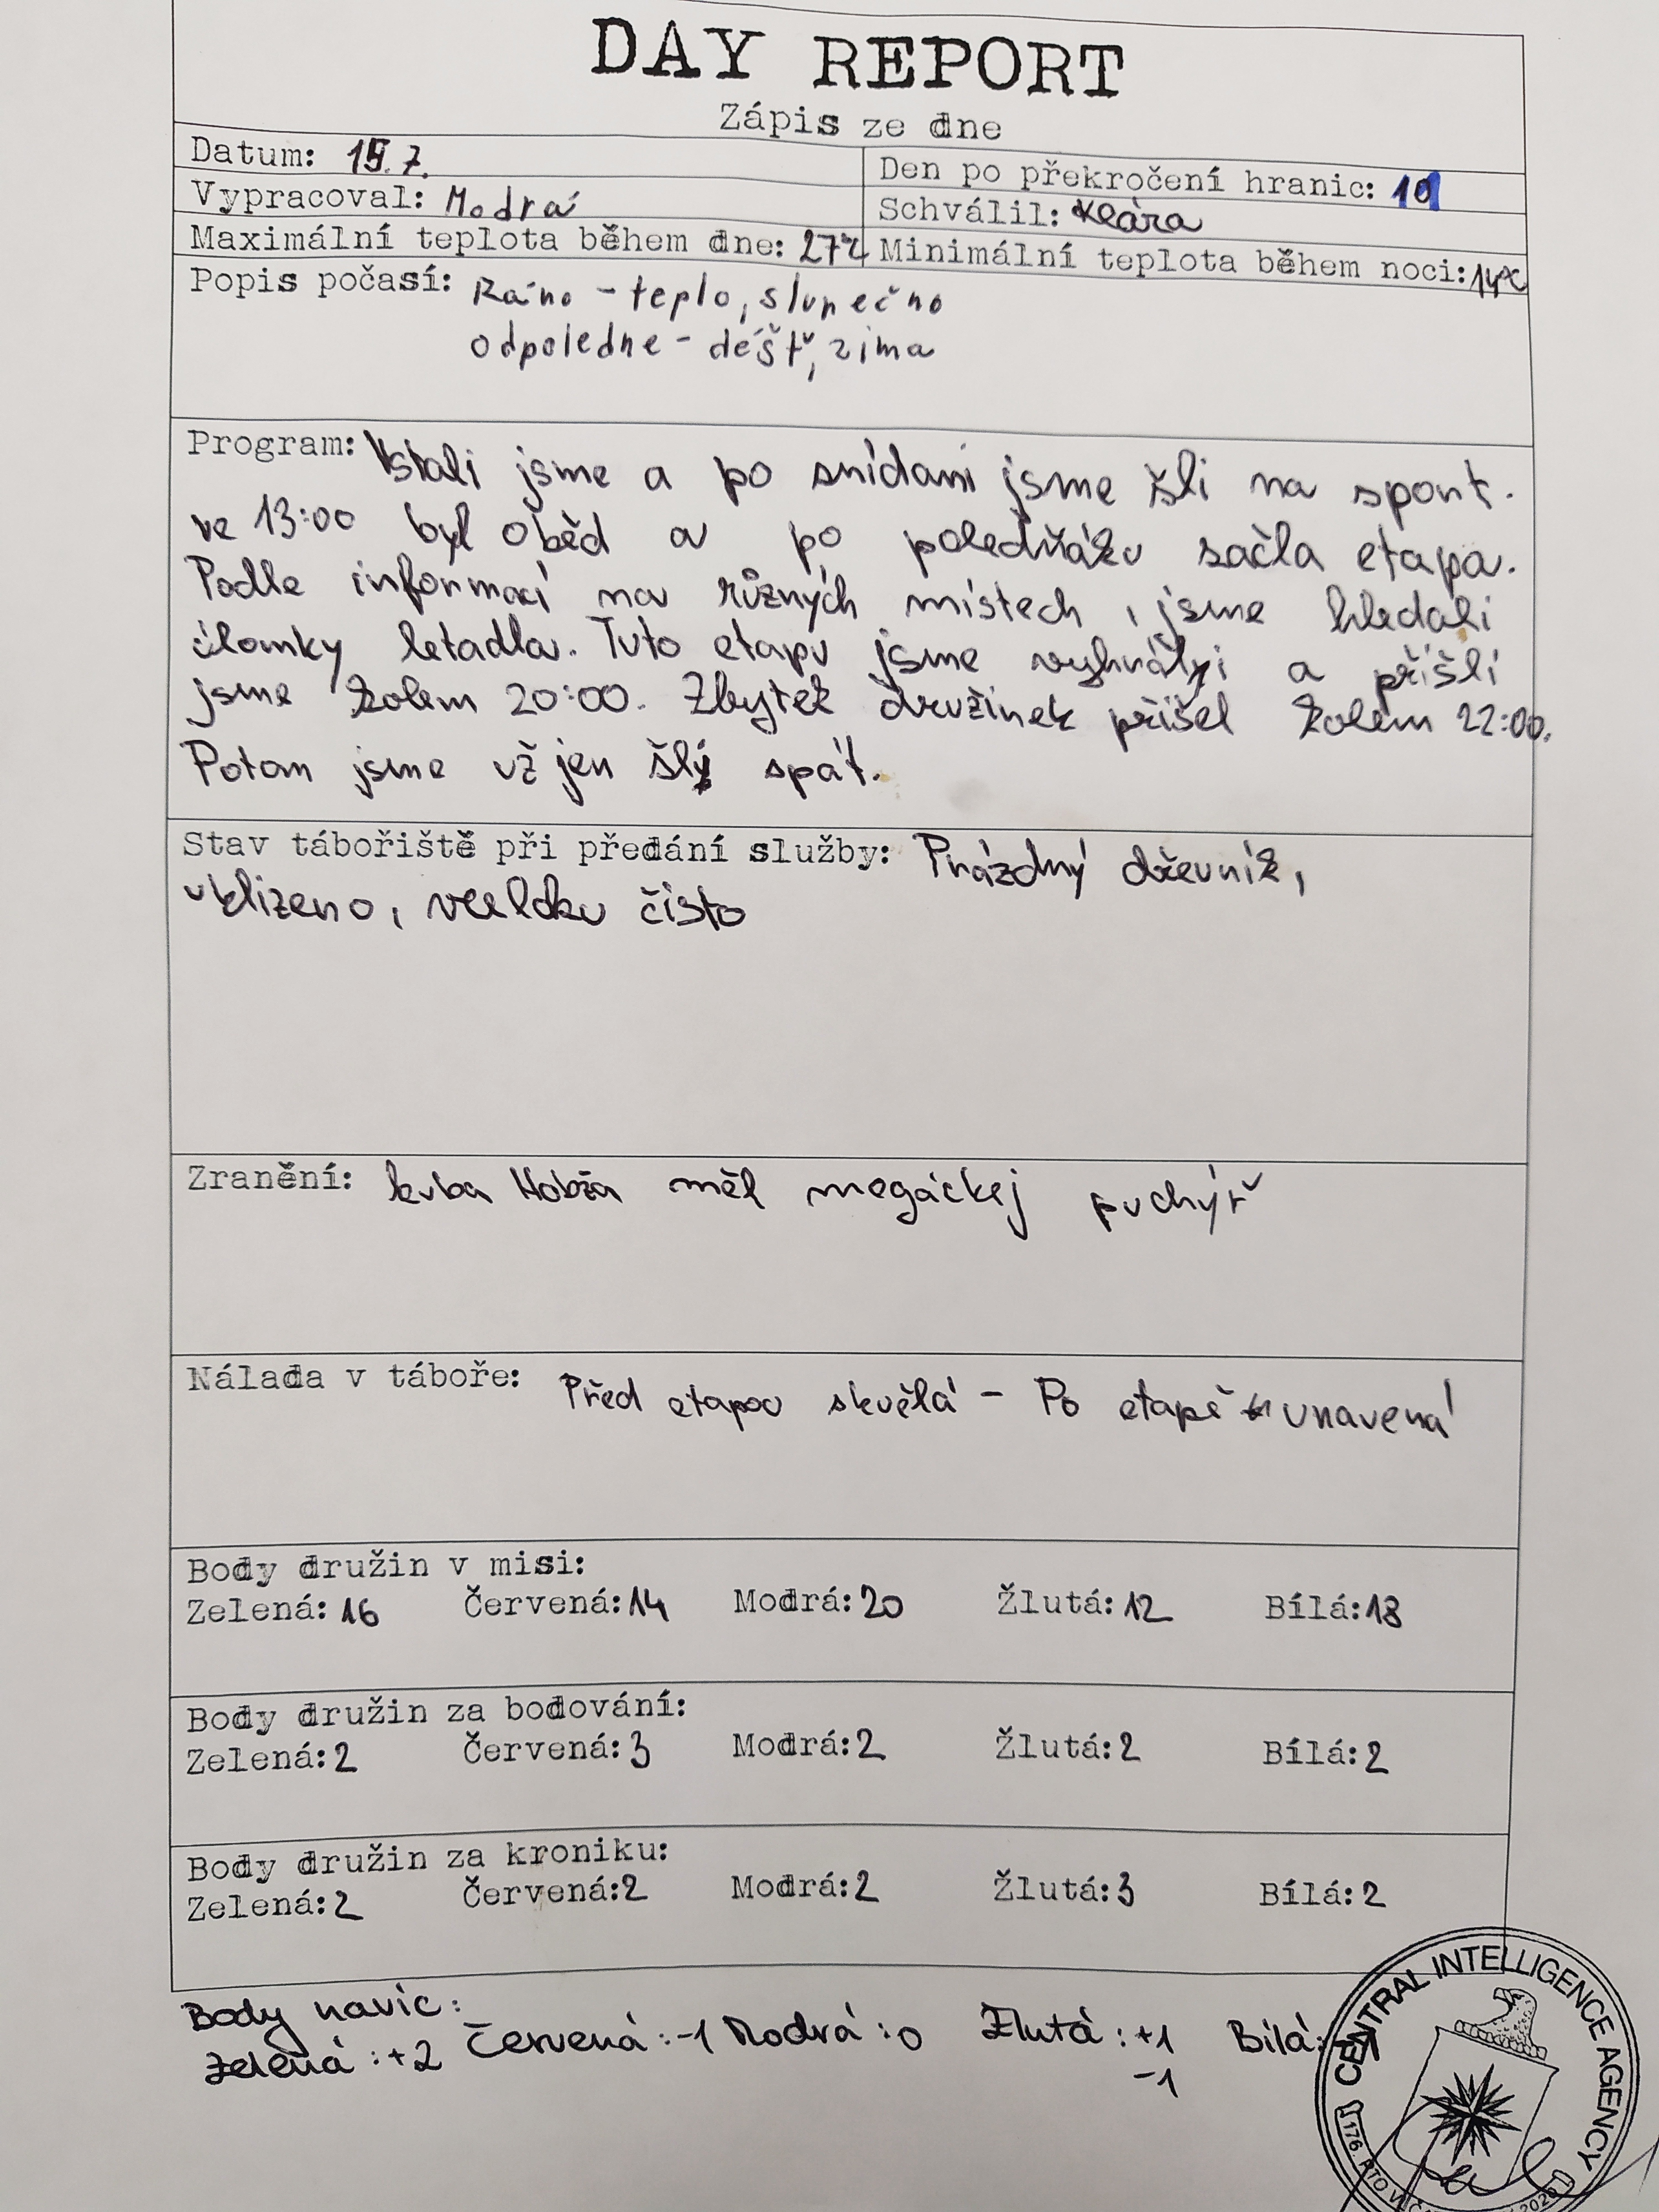 DAY REPORT
Zápis ze dne
Datum: 15.7.
Den po překročení hranic: 10
Vypracoval: Modrá
Schválil: Klára
Maximální teplota během dne: 27°C
Minimální teplota během noci: 14°C
Popis počasí: Ráno - teplo, slunečno
odpoledne - déšť, zima
Program: Vstali jsme a po snídani jsme šli na sport.
ve 13:00 byl oběd a po poledňáku začla etapa.
Podle informací na různých místech, jsme hledali
úlomky letadla. Tuto etapu jsme vyhráli a přišli
jsme kolem 20:00. Zbytek družinek přišel kolem 22:00.
Potom jsme už jen šly spát.
Stav tábořiště při předání služby: Prázdný dřevník,
uklizeno, vcelku čisto
Zranění: kuba Hobža měl megáckej puchýř
Nálada v táboře: Před etapou skvělá - Po etapě unavená
Body družin v misi:
Zelená: 16 Červená: 14 Modrá: 20 Žlutá: 12 Bílá: 18
Body družin za bodování:
Zelená: 2 Červená: 3 Modrá: 2 Žlutá: 2 Bílá: 2
Body družin za kroniku:
Zelená: 2 Červená: 2 Modrá: 2 Žlutá: 3 Bílá: 2
Body navíc:
Zelená: +2 Červená: -1 Modrá: 0 Žlutá: +1 Bílá:
-1
CENTRAL INTELLIGENCE AGENCY
176. PTO